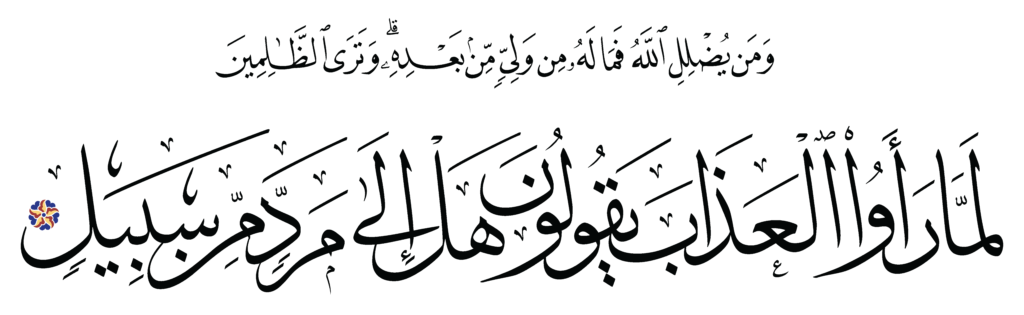 وَمَن يُضْلِلِ ٱللَّهُ فَمَا لَهُۥ مِن وَلِىٍّ مِّنۢ بَعْدِهِۦ ۗ وَتَرَى ٱلظَّٰلِمِينَ
لَمَّا رَأَوُا۟ ٱلْعَذَابَ يَقُولُونَ هَلْ إِلَىٰ مَرَدٍّ مِّن سَبِيلٍ